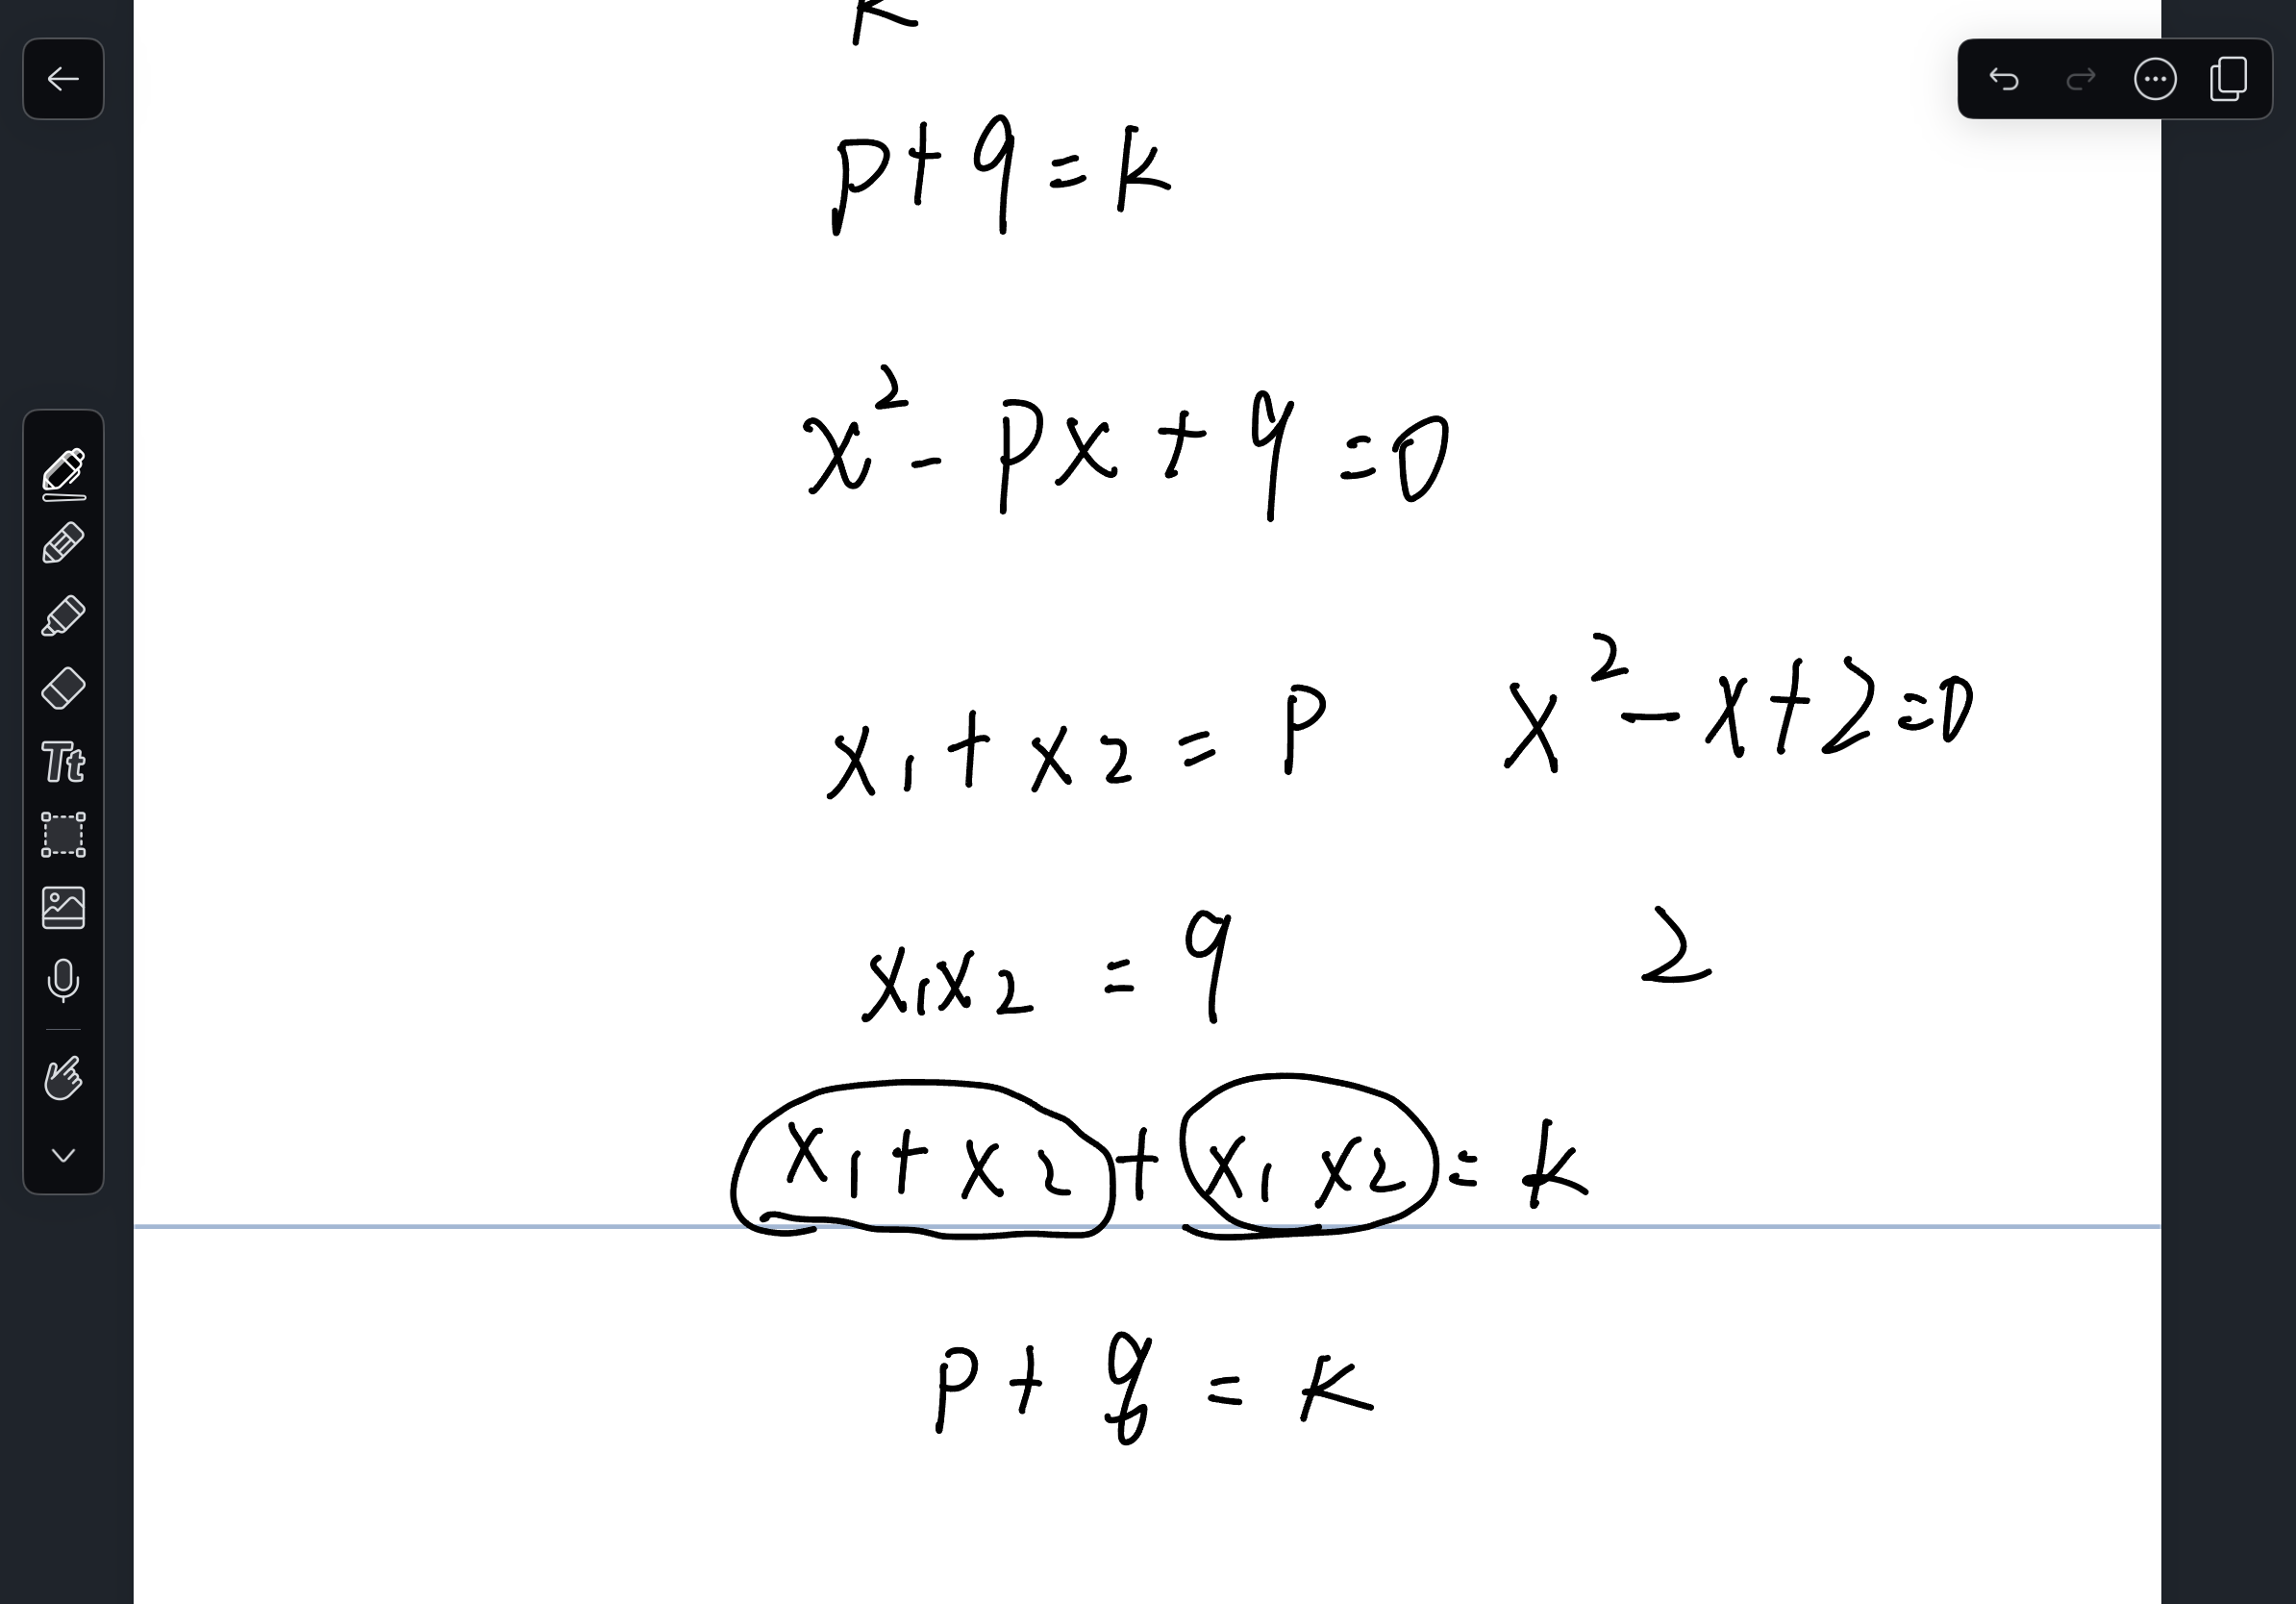 k
p + q = k
x² - px + q = 0
x₁ + x₂ = p
x² - x + 2 = 0
x₁x₂ = q
2
x₁ + x₂ + x₁x₂ = k
p + q = k
Tt